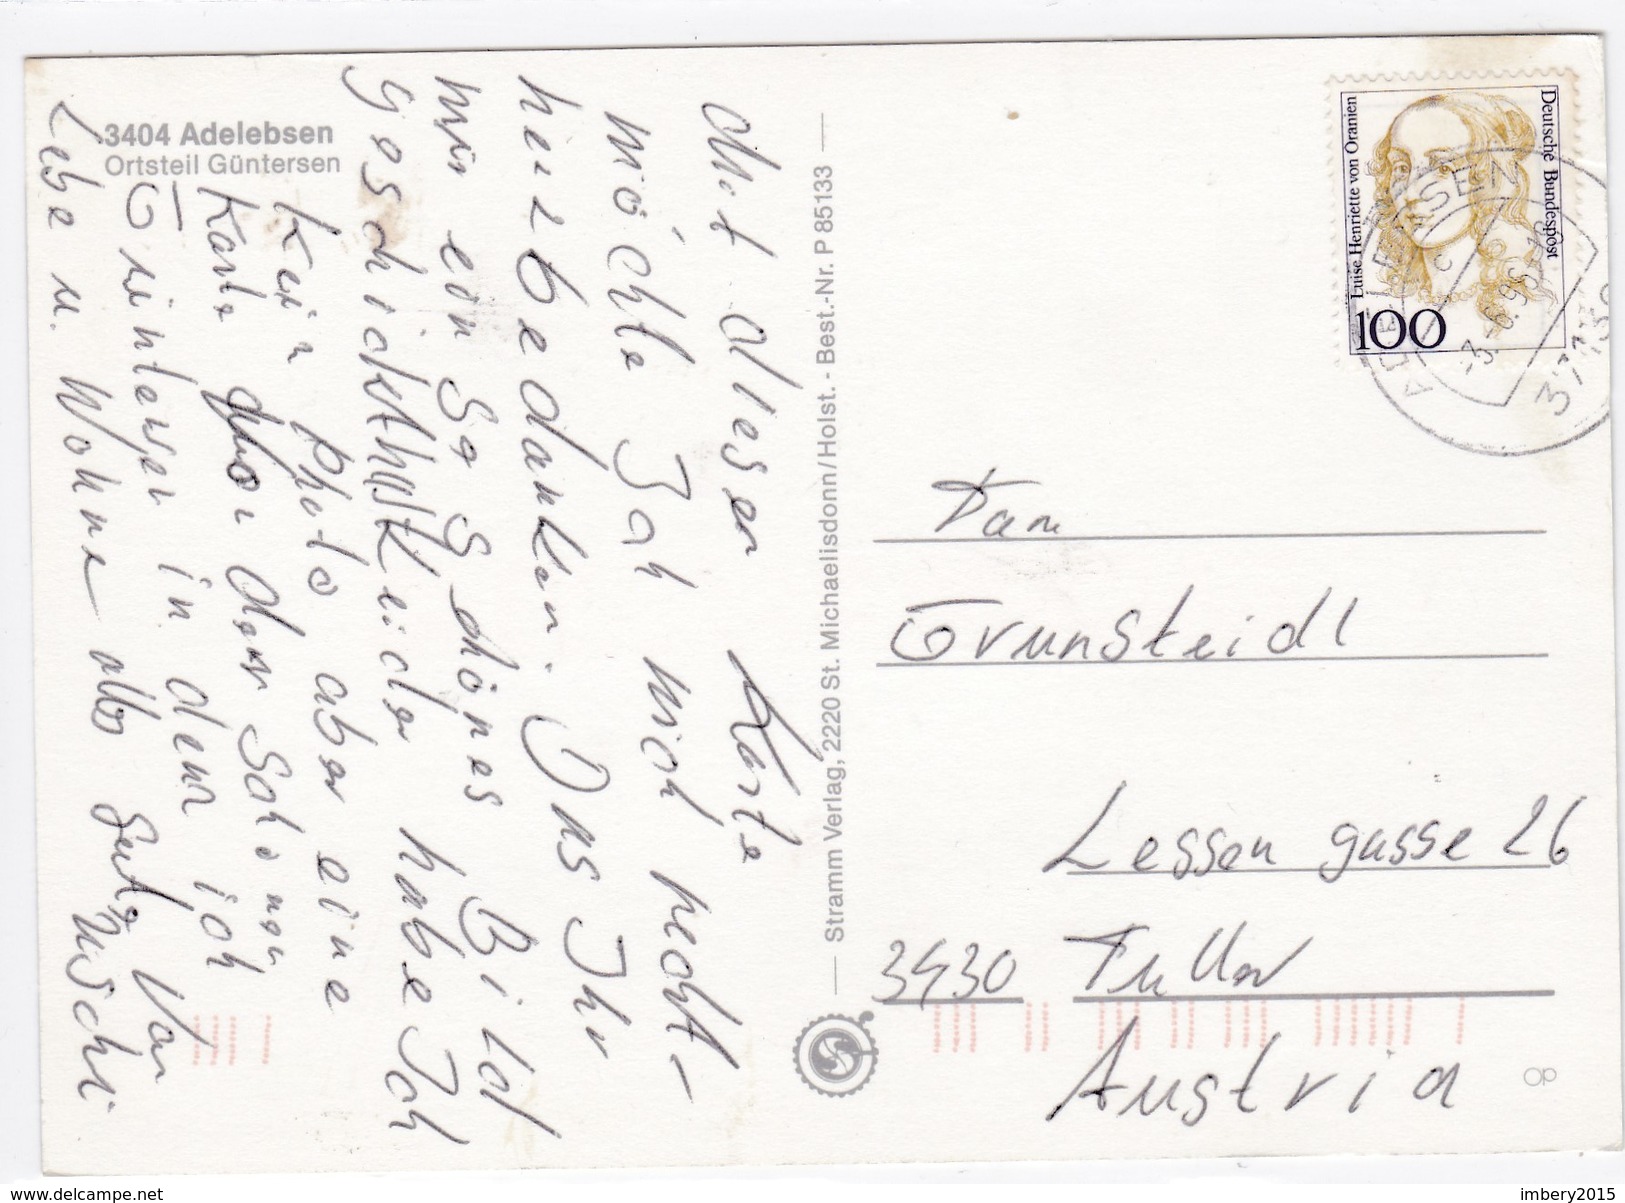 3404 Adelebsen
Ortsteil Güntersen
Mit dieser Karte
möchte Ich mich recht-
herzbedanken. Das Ihr
mir ein So Schönes Bild
geschickthast Leider habe Ich
Kein Photo aber eine
Karte von den Schönen
Güntersen in dem ich
Lebe u. Wohne alles Gute Von
Uschi
Stramm Verlag, 2220 St. Michaelisdonn/Holst. - Best.-Nr. P 85133
Deutsche Bundespost
Luise Henriette von Oranien
100
ADELEBSEN
-3.-6.96
37139
Fam
Grunsteidl
Lessen gasse 26
3430 Tulln
Austria
www.delcampe.net
imbery2015